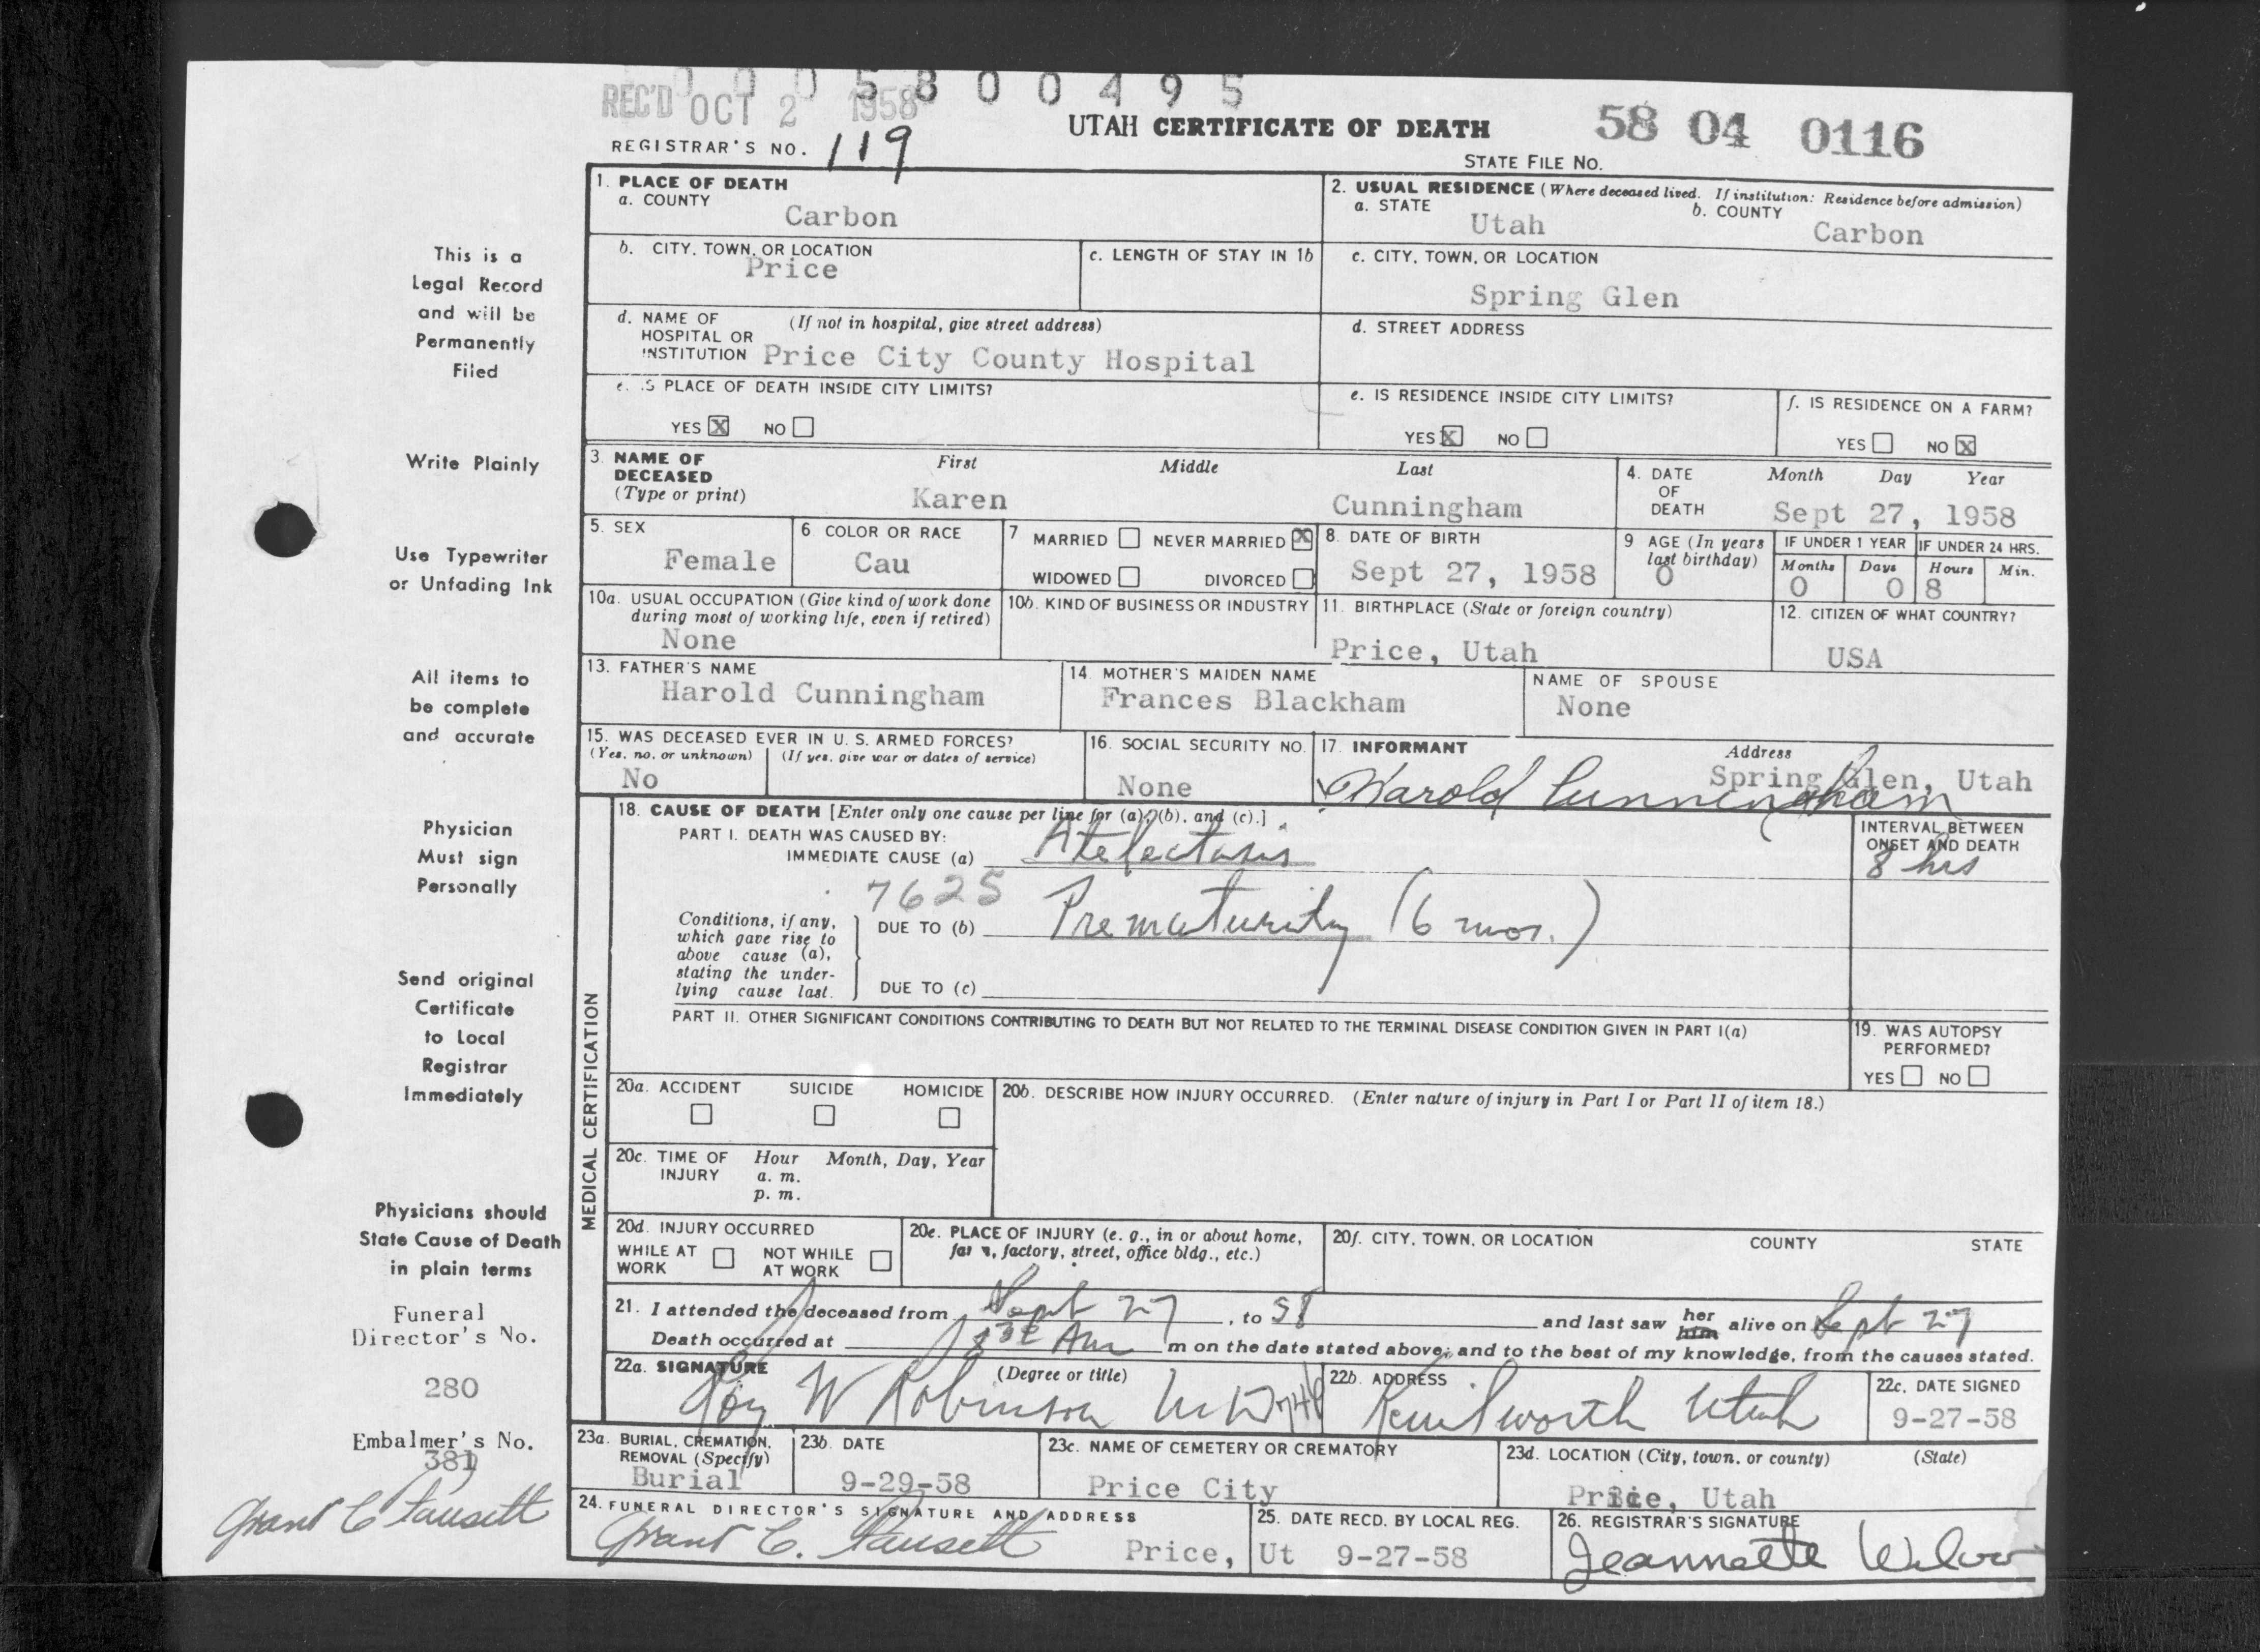 0 0 0 5 8 0 0 4 9 5
REC'D OCT 2 1958
UTAH CERTIFICATE OF DEATH
58 04 0116
REGISTRAR'S NO. 119
STATE FILE NO.
1. PLACE OF DEATH
a. COUNTY
Carbon
2. USUAL RESIDENCE (Where deceased lived. If institution: Residence before admission)
a. STATE b. COUNTY
Utah Carbon
b. CITY, TOWN, OR LOCATION
Price
c. LENGTH OF STAY IN 1b
c. CITY, TOWN, OR LOCATION
Spring Glen
d. NAME OF (If not in hospital, give street address)
HOSPITAL OR
INSTITUTION Price City County Hospital
d. STREET ADDRESS
e. IS PLACE OF DEATH INSIDE CITY LIMITS?
YES X NO
e. IS RESIDENCE INSIDE CITY LIMITS?
YES X NO
f. IS RESIDENCE ON A FARM?
YES NO X
3. NAME OF DECEASED
(Type or print)
First Middle Last
Karen Cunningham
4. DATE OF DEATH
Month Day Year
Sept 27, 1958
5. SEX
Female
6 COLOR OR RACE
Cau
7 MARRIED NEVER MARRIED X
WIDOWED DIVORCED
8. DATE OF BIRTH
Sept 27, 1958
9 AGE (In years last birthday)
0
IF UNDER 1 YEAR
Months Days
0 0
IF UNDER 24 HRS.
Hours Min.
8
10a. USUAL OCCUPATION (Give kind of work done
during most of working life, even if retired)
None
10b. KIND OF BUSINESS OR INDUSTRY
11. BIRTHPLACE (State or foreign country)
Price, Utah
12. CITIZEN OF WHAT COUNTRY?
USA
13. FATHER'S NAME
Harold Cunningham
14. MOTHER'S MAIDEN NAME
Frances Blackham
NAME OF SPOUSE
None
15. WAS DECEASED EVER IN U. S. ARMED FORCES?
(Yes, no, or unknown) (If yes, give war or dates of service)
No
16. SOCIAL SECURITY NO.
None
17. INFORMANT Address
Harold Cunningham Spring Glen, Utah
MEDICAL CERTIFICATION
18. CAUSE OF DEATH [Enter only one cause per line for (a), (b), and (c).]
PART I. DEATH WAS CAUSED BY:
IMMEDIATE CAUSE (a) Atelectasis
INTERVAL BETWEEN
ONSET AND DEATH
8 hrs
7625
Conditions, if any,
which gave rise to
above cause (a),
stating the under-
lying cause last.
DUE TO (b) Prematurity (6 mos.)
DUE TO (c)
PART II. OTHER SIGNIFICANT CONDITIONS CONTRIBUTING TO DEATH BUT NOT RELATED TO THE TERMINAL DISEASE CONDITION GIVEN IN PART I(a)
19. WAS AUTOPSY
PERFORMED?
YES NO
20a. ACCIDENT SUICIDE HOMICIDE
20b. DESCRIBE HOW INJURY OCCURRED. (Enter nature of injury in Part I or Part II of item 18.)
20c. TIME OF INJURY
Hour Month, Day, Year
a. m.
p. m.
20d. INJURY OCCURRED
WHILE AT WORK NOT WHILE AT WORK
20e. PLACE OF INJURY (e. g., in or about home,
farm, factory, street, office bldg., etc.)
20f. CITY, TOWN, OR LOCATION COUNTY STATE
21. I attended the deceased from Sept 27, to 58 and last saw her him alive on Sept 27
Death occurred at Am m on the date stated above; and to the best of my knowledge, from the causes stated.
22a. SIGNATURE (Degree or title)
Roy W Robinson M.D.
22b. ADDRESS
Kenilworth Utah
22c. DATE SIGNED
9-27-58
23a. BURIAL, CREMATION,
REMOVAL (Specify)
Burial
23b. DATE
9-29-58
23c. NAME OF CEMETERY OR CREMATORY
Price City
23d. LOCATION (City, town, or county) (State)
Price, Utah
24. FUNERAL DIRECTOR'S SIGNATURE AND ADDRESS
Grant C. Fausett Price, Ut
25. DATE RECD. BY LOCAL REG.
9-27-58
26. REGISTRAR'S SIGNATURE
Jeannette
This is a
Legal Record
and will be
Permanently
Filed
Write Plainly
Use Typewriter
or Unfading Ink
All items to
be complete
and accurate
Physician
Must sign
Personally
Send original
Certificate
to Local
Registrar
Immediately
Physicians should
State Cause of Death
in plain terms
Funeral
Director's No.
280
Embalmer's No.
381
Grant C Fausett